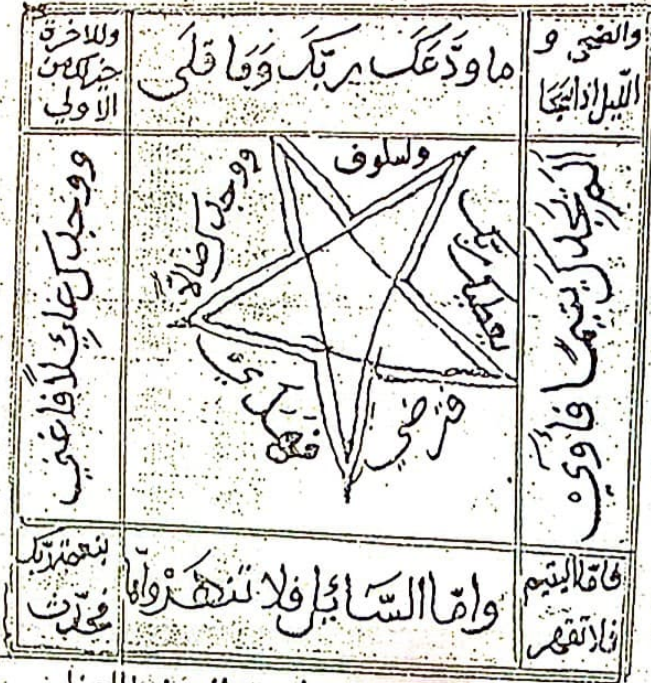 والضحى و
الليل اذا سجى
ما ودعك ربك وما قلى
وللاخرة
خير لك من
الاولي
ولسوف
يعطيك ربك
فترضى
الم يجدك يتيما فأوى
ووجدك ضالاً
فهدى
ووجدك عائلاً فاغنى
فاما اليتيم
فلا تقهر
واما السائل فلا تنهر واما
بنعمة ربك
فحدث